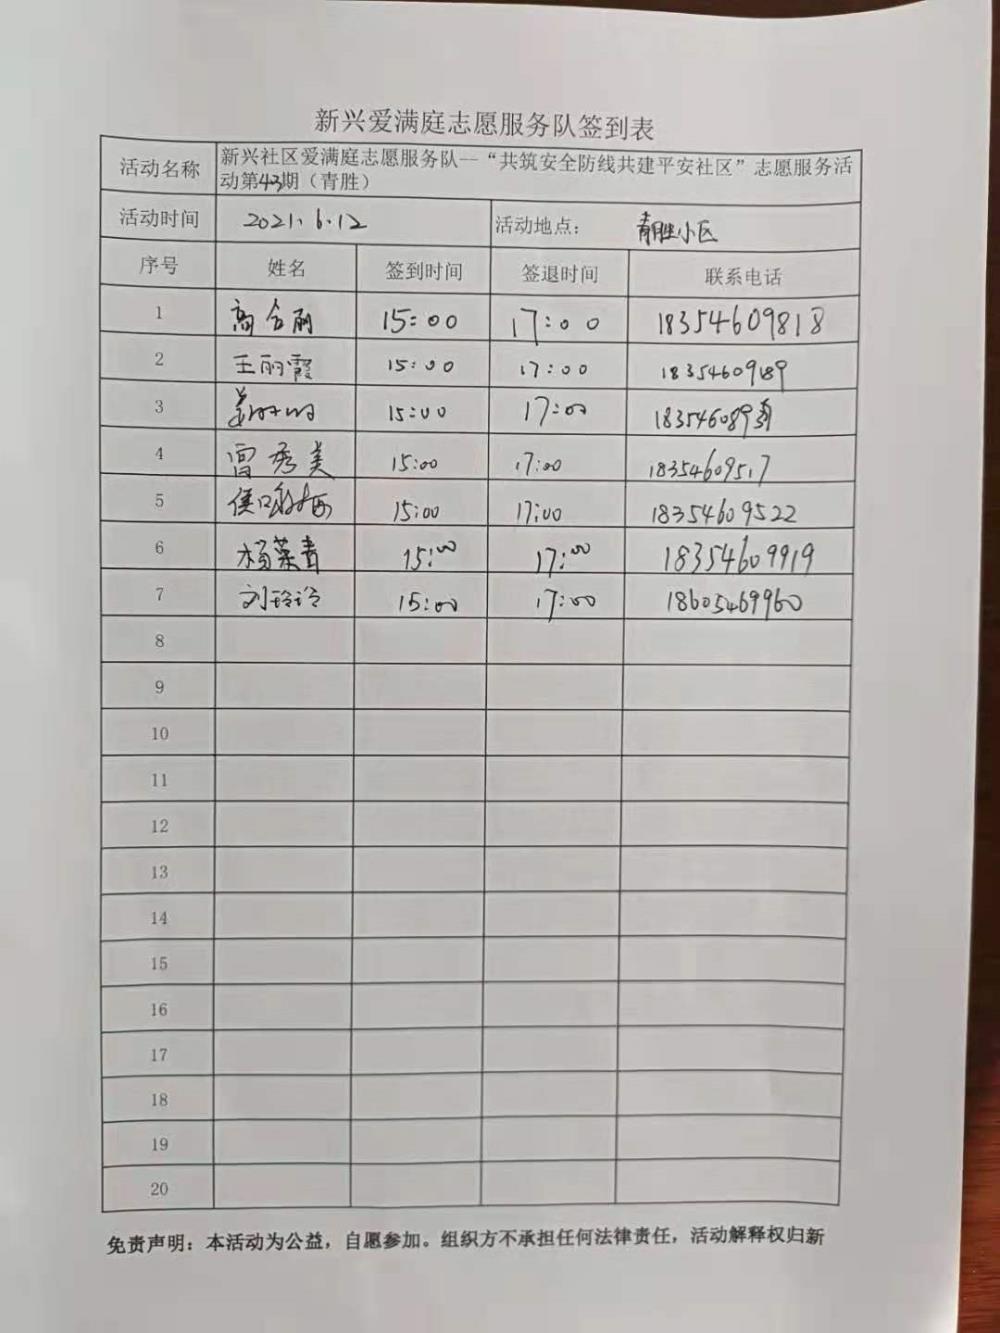 新兴爱满庭志愿服务队签到表
活动名称 新兴社区爱满庭志愿服务队--“共筑安全防线共建平安社区”志愿服务活
动第43期（青胜）
活动时间 2021.6.12 活动地点： 青胜小区
序号 姓名 签到时间 签退时间 联系电话
1 高合丽 15:00 17:00 18354609818
2 王丽霞 15:00 17:00 18354609189
3 15:00 17:00
4 曹秀美 15:00 17:00 18354609517
5 侯咏梅 15:00 17:00 18354609522
6 杨荣青 15:00 17:00 18354609919
7 刘玲玲 15:00 17:00 18605469960
8
9
10
11
12
13
14
15
16
17
18
19
20
免责声明：本活动为公益，自愿参加。组织方不承担任何法律责任，活动解释权归新